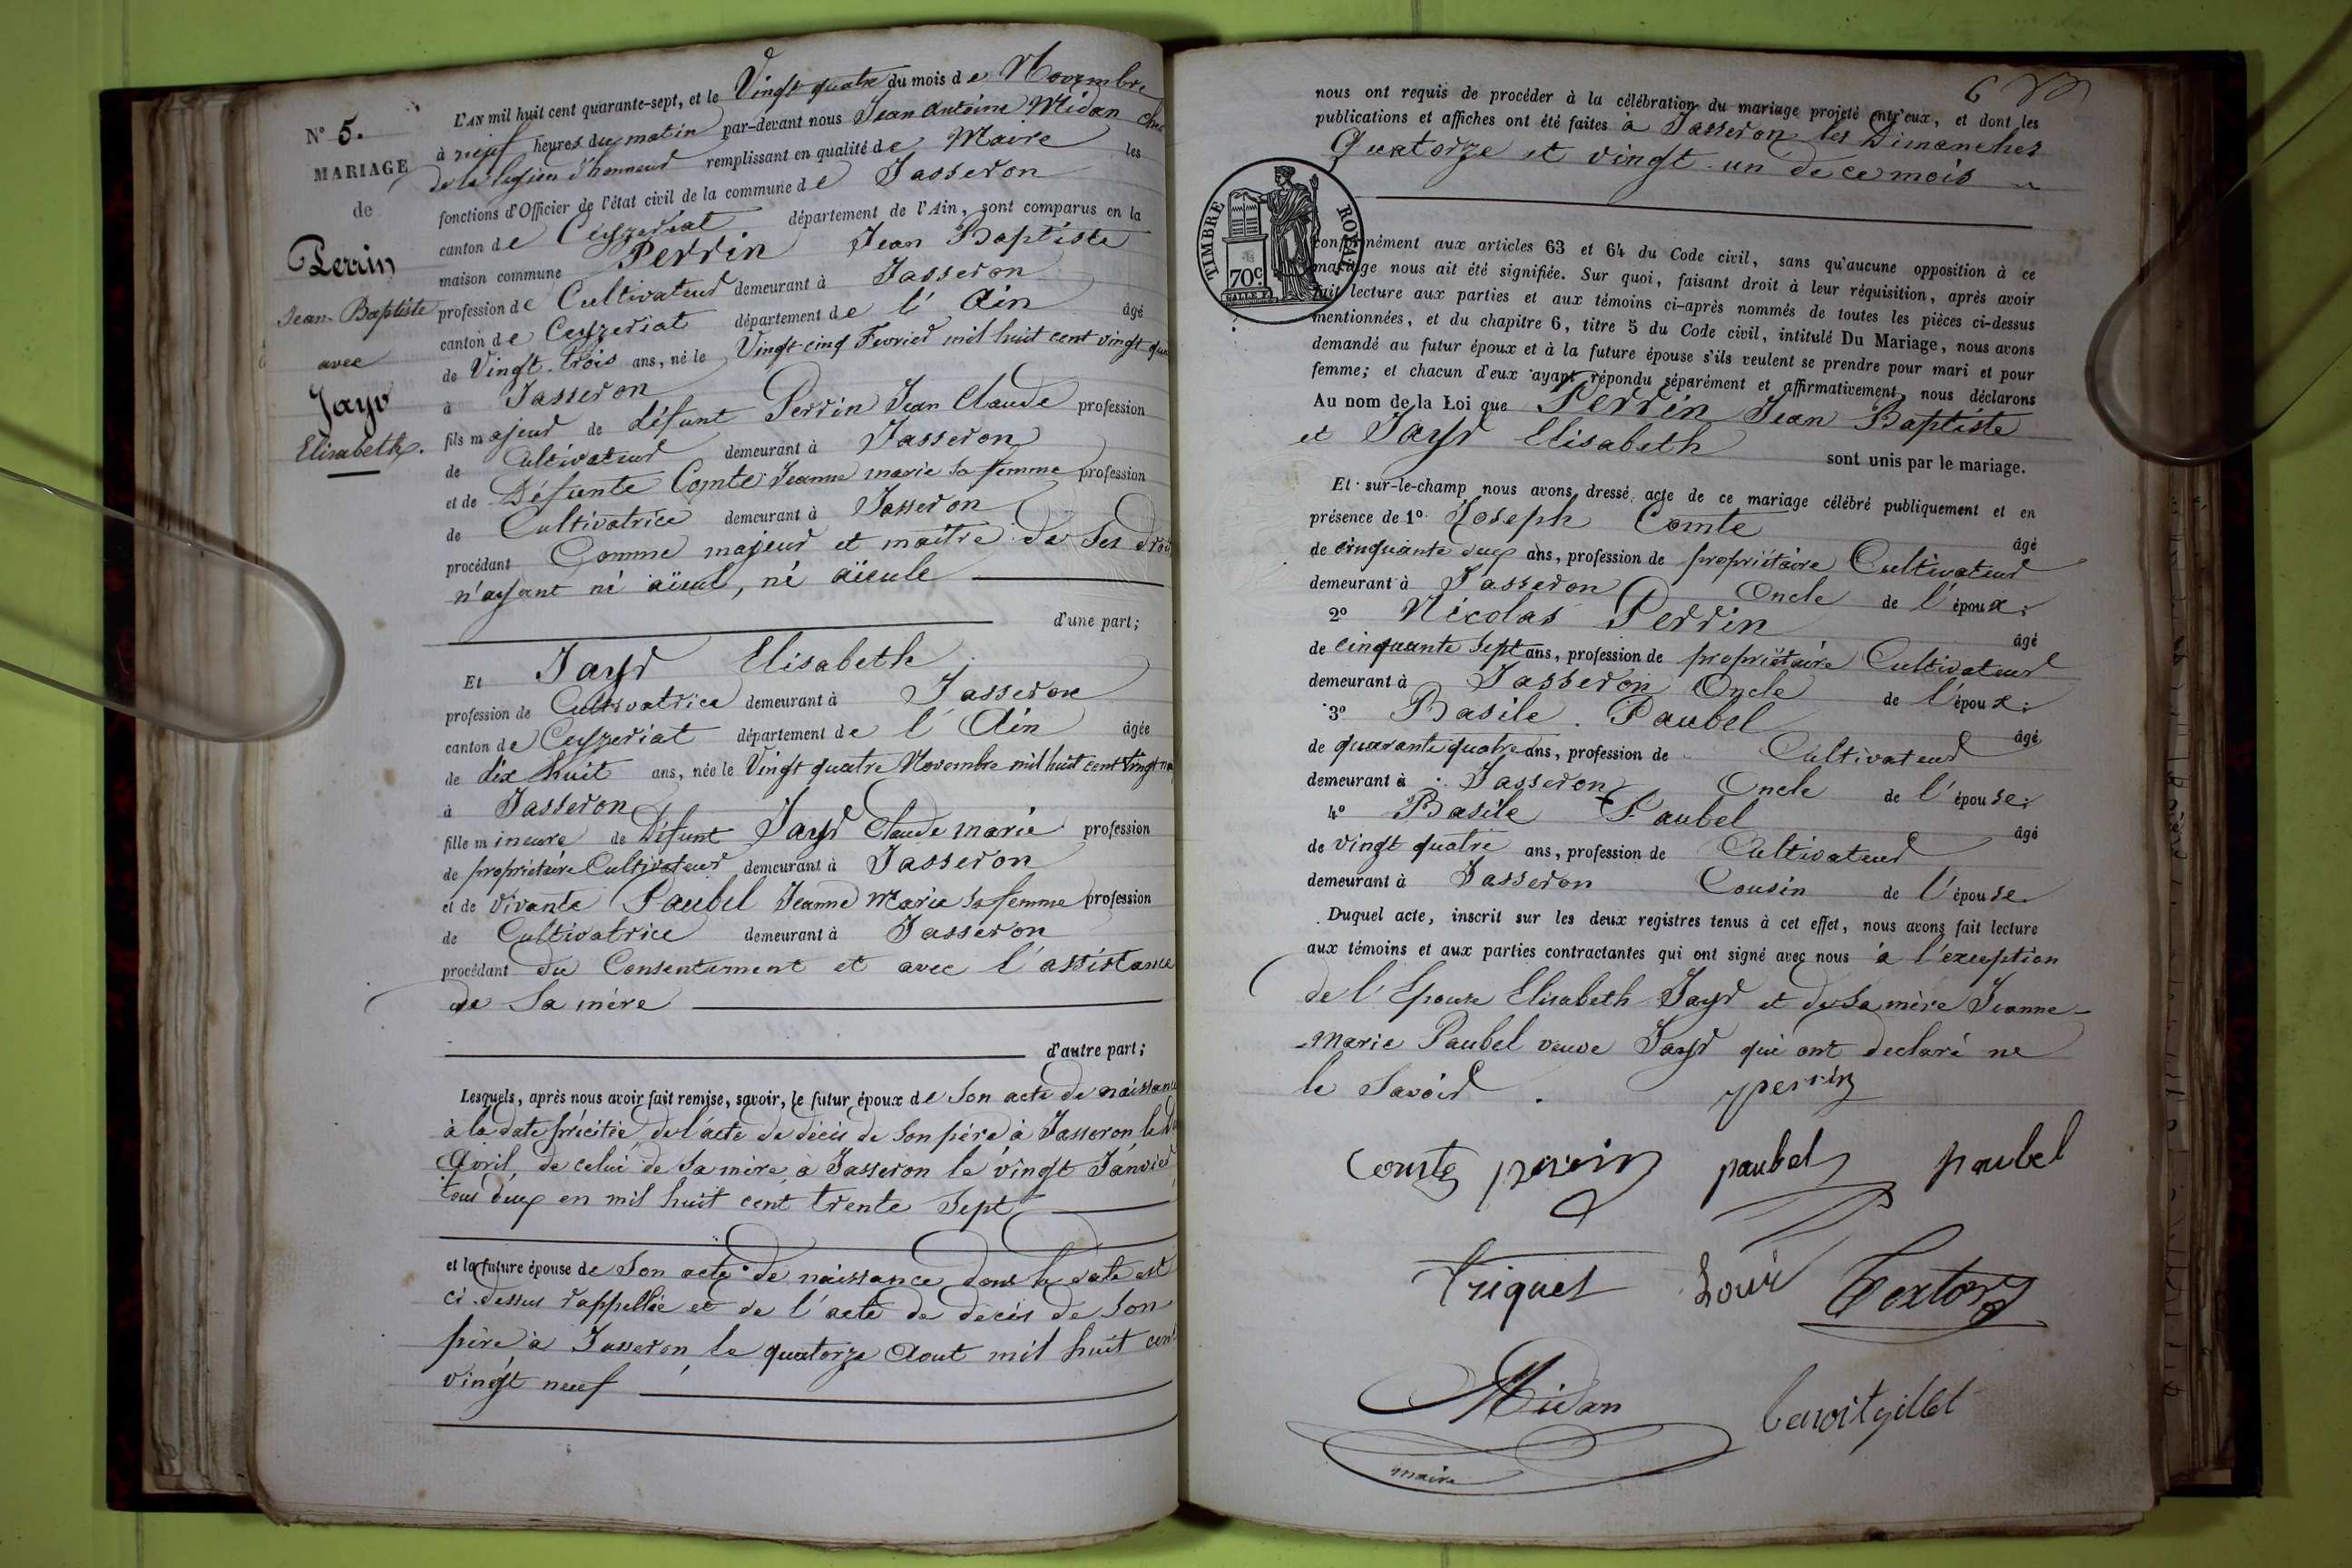 N° 5.
MARIAGE
de
Perrin
Jean-Baptiste
avec
Jayr
Elisabeth.
L'AN mil huit cent quarante-sept, et le Vingt quatre du mois de Novembre
à neuf heures du matin par-devant nous Jean Antoine Midan
de la légion d'honneur remplissant en qualité de Maire les
fonctions d'Officier de l'état civil de la commune de Jasseron
canton de Ceyzeriat département de l'Ain, sont comparus en la
maison commune Perrin Jean Baptiste
profession de Cultivateur demeurant à Jasseron
canton de Ceyzeriat département de l'Ain âgé
de Vingt-trois ans, né le Vingt-cinq Fevrier mil huit cent vingt
à Jasseron
fils majeur de défunt Perrin Jean Claude profession
de Cultivateur demeurant à Jasseron
et de Défunte Comte Jeanne marie sa femme profession
de Cultivatrice demeurant à Jasseron
procédant Comme majeur et maître de ses
n'ayant ni aïeul, ni aïeule
d'une part;
Et Jayr Elisabeth
profession de Cultivatrice demeurant à Jasseron
canton de Ceyzeriat département de l'Ain âgée
de dix huit ans, née le Vingt quatre Novembre mil huit cent
à Jasseron
fille mineure de Défunt Jayr Claude marie profession
de propriétaire Cultivateur demeurant à Jasseron
et de vivante Paubel Jeanne Marie sa femme profession
de Cultivatrice demeurant à Jasseron
procédant du Consentement et avec l'assistance
de Sa mère
d'autre part;
Lesquels, après nous avoir fait remise, savoir, le futur époux de Son acte de naissance
à la date précitée, de l'acte de décès de Son père à Jasseron le
Avril, de celui de Sa mère, à Jasseron le vingt Janvier
tous deux en mil huit cent trente Sept
et la future épouse de Son acte de naissance dont la date est
ci-dessus rappellée et de l'acte de décès de Son
père à Jasseron le quatorze Aout mil huit cent
vingt neuf
6
nous ont requis de procéder à la célébration du mariage projeté entr'eux, et dont les
publications et affiches ont été faites à Jasseron les Dimanches
Quatorze et vingt-un de ce mois
TIMBRE ROYAL
70c.
conformément aux articles 63 et 64 du Code civil, sans qu'aucune opposition à ce
mariage nous ait été signifiée. Sur quoi, faisant droit à leur réquisition, après avoir
fait lecture aux parties et aux témoins ci-après nommés de toutes les pièces ci-dessus
mentionnées, et du chapitre 6, titre 5 du Code civil, intitulé Du Mariage, nous avons
demandé au futur époux et à la future épouse s'ils veulent se prendre pour mari et pour
femme; et chacun d'eux ayant répondu séparément et affirmativement, nous déclarons
Au nom de la Loi que Perrin Jean Baptiste
et Jayr Elisabeth
sont unis par le mariage.
Et sur-le-champ nous avons dressé acte de ce mariage célébré publiquement et en
présence de 1° Joseph Comte âgé
de cinquante deux ans, profession de propriétaire Cultivateur
demeurant à Jasseron Oncle de l'époux;
2° Nicolas Perrin âgé
de cinquante sept ans, profession de propriétaire Cultivateur
demeurant à Jasseron Oncle de l'époux;
3° Basile Paubel âgé
de quarante quatre ans, profession de Cultivateur
demeurant à Jasseron Oncle de l'épouse;
4° Basile Paubel âgé
de vingt quatre ans, profession de Cultivateur
demeurant à Jasseron Cousin de l'épouse.
Duquel acte, inscrit sur les deux registres tenus à cet effet, nous avons fait lecture
aux témoins et aux parties contractantes qui ont signé avec nous à l'exception
de l'Epouse Elisabeth Jayr et de Sa mère Jeanne-
Marie Paubel veuve Jayr qui ont déclaré ne
le Savoir.
perrin
comte perrin paubel paubel
Triquet Loui Textor
Midan
maire
benoit gillet